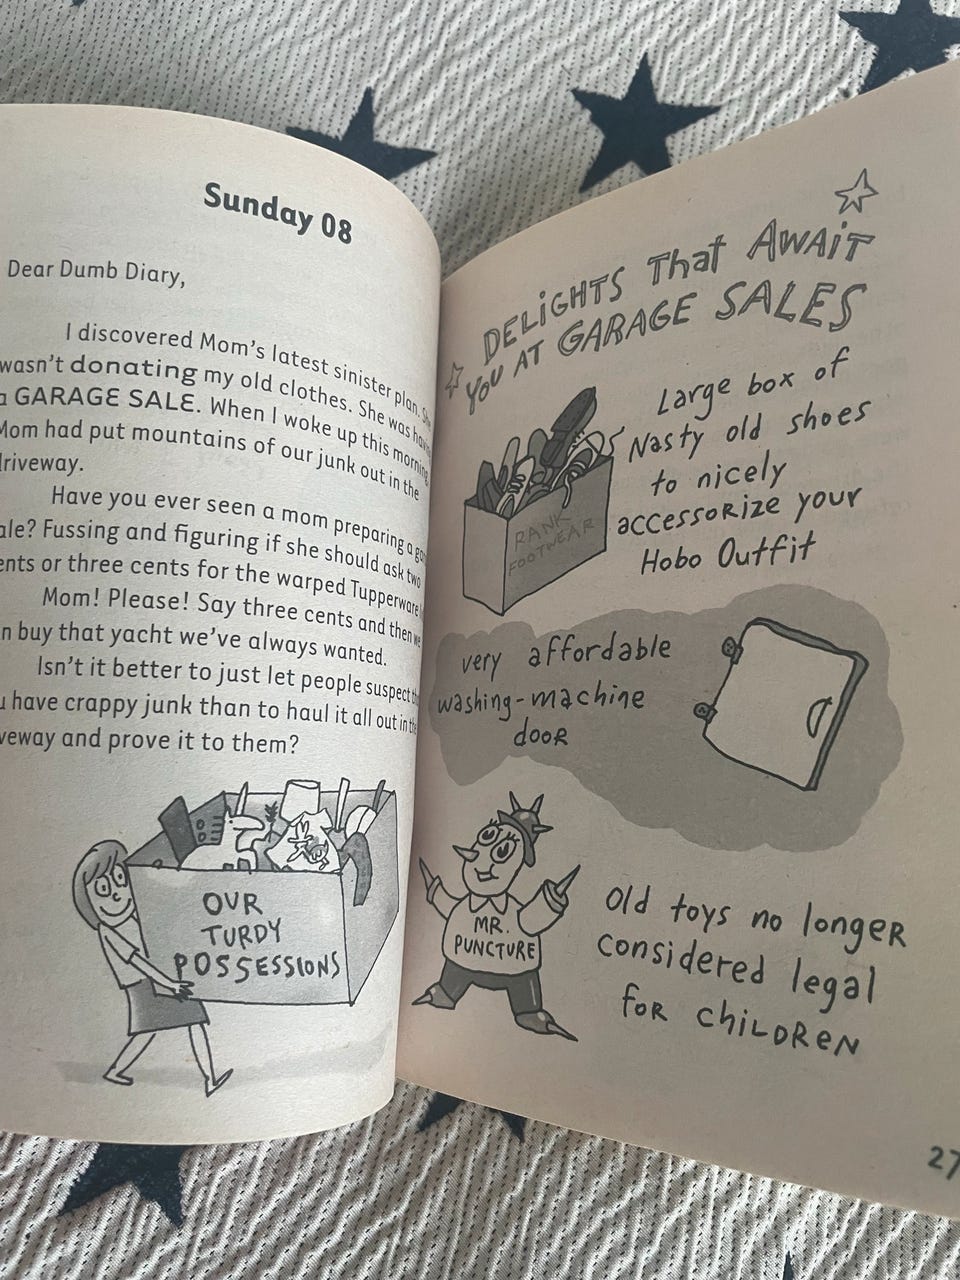 Sunday 08
Dear Dumb Diary,
I discovered Mom's latest sinister plan.
wasn't donating my old clothes. She was
a GARAGE SALE. When I woke up this morning,
Mom had put mountains of our junk out in the
driveway.
Have you ever seen a mom preparing a
Fussing and figuring if she should ask two
or three cents for the warped Tupperware
Mom! Please! Say three cents and then we
buy that yacht we've always wanted.
Isn't it better to just let people suspect
have crappy junk than to haul it all out in
and prove it to them?
OUR
TURDY
POSSESSIONS
DELIGHTS That AWAiT
YOU AT GARAGE SALES
Large box of
Nasty old shoes
to nicely
accessorize your
Hobo Outfit
RANK
FOOTWEAR
very affordable
washing-machine
door
MR.
PUNCTURE
Old toys no longer
considered legal
for children
27